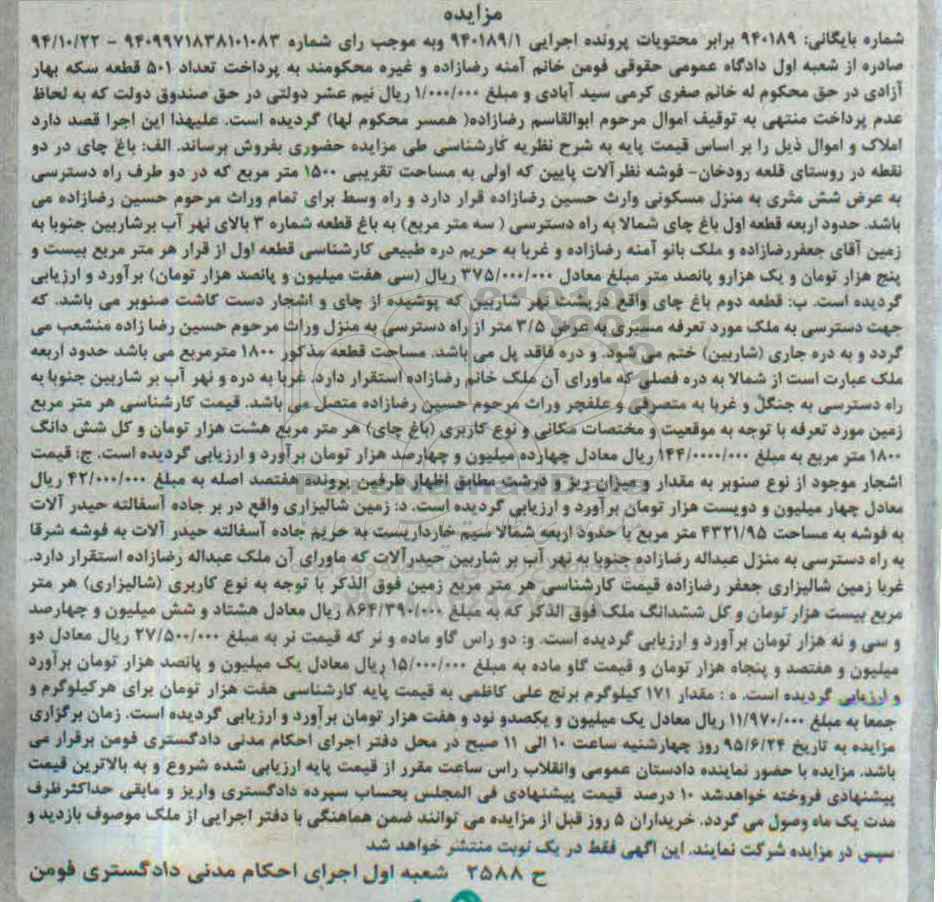 مزایده
شماره بایگانی: ۹۴۰۱۸۹ برابر محتویات پرونده اجرایی ۹۴۰۱۸۹/۱ وبه موجب رای شماره ۹۴۰۹۹۷۱۸۳۸۱۰۱۰۸۳ - ۹۴/۱۰/۲۲
صادره از شعبه اول دادگاه عمومی حقوقی فومن خانم آمنه رضازاده و غیره محکومند به پرداخت تعداد ۵۰۱ قطعه سکه بهار
آزادی در حق محکوم له خانم صغری کرمی سید آبادی و مبلغ ۱/۰۰۰/۰۰۰ ریال نیم عشر دولتی در حق صندوق دولت که به لحاظ
عدم پرداخت منتهی به توقیف اموال مرحوم ابوالقاسم رضازاده( همسر محکوم لها) گردیده است. علیهذا این اجرا قصد دارد
املاک و اموال ذیل را بر اساس قیمت پایه به شرح نظریه کارشناسی طی مزایده حضوری بفروش برساند. الف: باغ چای در دو
نقطه در روستای قلعه رودخان- فوشه نظرآلات پایین که اولی به مساحت تقریبی ۱۵۰۰ متر مربع که در دو طرف راه دسترسی
به عرض شش متری به منزل مسکونی وارث حسین رضازاده قرار دارد و راه وسط برای تمام وراث مرحوم حسین رضازاده می
باشد. حدود اربعه قطعه اول باغ چای شمالا به راه دسترسی ( سه متر مربع) به باغ قطعه شماره ۳ بالای نهر آب برشاربین جنوبا به
زمین آقای جعفررضازاده و ملک بانو آمنه رضازاده و غربا به حریم دره طبیعی کارشناسی قطعه اول از قرار هر متر مربع بیست و
پنج هزار تومان و یک هزارو پانصد متر مبلغ معادل ۳۷۵/۰۰۰/۰۰۰ ریال (سی هفت میلیون و پانصد هزار تومان) برآورد و ارزیابی
گردیده است. ب: قطعه دوم باغ چای واقع درپشت نهر شاربین که پوشیده از چای و اشجار دست کاشت صنوبر می باشد. که
جهت دسترسی به ملک مورد تعرفه مسیری به عرض ۳/۵ متر از راه دسترسی به منزل وراث مرحوم حسین رضا زاده منشعب می
گردد و به دره جاری (شاربین) ختم می شود. و دره فاقد پل می باشد. مساحت قطعه مذکور ۱۸۰۰ مترمربع می باشد حدود اربعه
ملک عبارت است از شمالا به دره فصلی که ماورای آن ملک خانم رضازاده استقرار دارد. غربا به دره و نهر آب بر شاربین جنوبا به
راه دسترسی به جنگل و غربا به متصرفی و علفچر وراث مرحوم حسین رضازاده متصل می باشد. قیمت کارشناسی هر متر مربع
زمین مورد تعرفه با توجه به موقعیت و مختصات مکانی و نوع کاربری (باغ چای) هر متر مربع هشت هزار تومان و کل شش دانگ
۱۸۰۰ متر مربع به مبلغ ۱۴۴/۰۰۰۰/۰۰۰ ریال معادل چهارده میلیون و چهارصد هزار تومان برآورد و ارزیابی گردیده است. ج: قیمت
اشجار موجود از نوع صنوبر به مقدار و میزان ریز و درشت مطابق اظهار طرفین پرونده هفتصد اصله به مبلغ ۴۲/۰۰۰/۰۰۰ ریال
معادل چهار میلیون و دویست هزار تومان برآورد و ارزیابی گردیده است. د: زمین شالیزاری واقع در بر جاده آسفالته حیدر آلات
به فوشه به مساحت ۴۳۲۱/۹۵ متر مربع با حدود اربعه شمالا سیم خارداریست به حریم جاده آسفالته حیدر آلات به فوشه شرقا
به راه دسترسی به منزل عبداله رضازاده جنوبا به نهر آب بر شاربین حیدرآلات که ماورای آن ملک عبداله رضازاده استقرار دارد.
غربا زمین شالیزاری جعفر رضازاده قیمت کارشناسی هر متر مربع زمین فوق الذکر با توجه به نوع کاربری (شالیزاری) هر متر
مربع بیست هزار تومان و کل ششدانگ ملک فوق الذکر که به مبلغ ۸۶۴/۳۹۰/۰۰۰ ریال معادل هشتاد و شش میلیون و چهارصد
و سی و نه هزار تومان برآورد و ارزیابی گردیده است. و: دو راس گاو ماده و نر که قیمت نر به مبلغ ۲۷/۵۰۰/۰۰۰ ریال معادل دو
میلیون و هفتصد و پنجاه هزار تومان و قیمت گاو ماده به مبلغ ۱۵/۰۰۰/۰۰۰ ریال معادل یک میلیون و پانصد هزار تومان برآورد
و ارزیابی گردیده است. ه : مقدار ۱۷۱ کیلوگرم برنج علی کاظمی به قیمت پایه کارشناسی هفت هزار تومان برای هرکیلوگرم و
جمعا به مبلغ ۱۱/۹۷۰/۰۰۰ ریال معادل یک میلیون و یکصدو نود و هفت هزار تومان برآورد و ارزیابی گردیده است. زمان برگزاری
مزایده به تاریخ ۹۵/۶/۲۴ روز چهارشنبه ساعت ۱۰ الی ۱۱ صبح در محل دفتر اجرای احکام مدنی دادگستری فومن برقرار می
باشد. مزایده با حضور نماینده دادستان عمومی وانقلاب راس ساعت مقرر از قیمت پایه ارزیابی شده شروع و به بالاترین قیمت
پیشنهادی فروخته خواهدشد ۱۰ درصد قیمت پیشنهادی فی المجلس بحساب سپرده دادگستری واریز و مابقی حداکثرظرف
مدت یک ماه وصول می گردد. خریداران ۵ روز قبل از مزایده می توانند ضمن هماهنگی با دفتر اجرایی از ملک موصوف بازدید و
سپس در مزایده شرکت نمایند. این آگهی فقط در یک نوبت منتشر خواهد شد
ح ۲۵۸۸ شعبه اول اجرای احکام مدنی دادگستری فومن